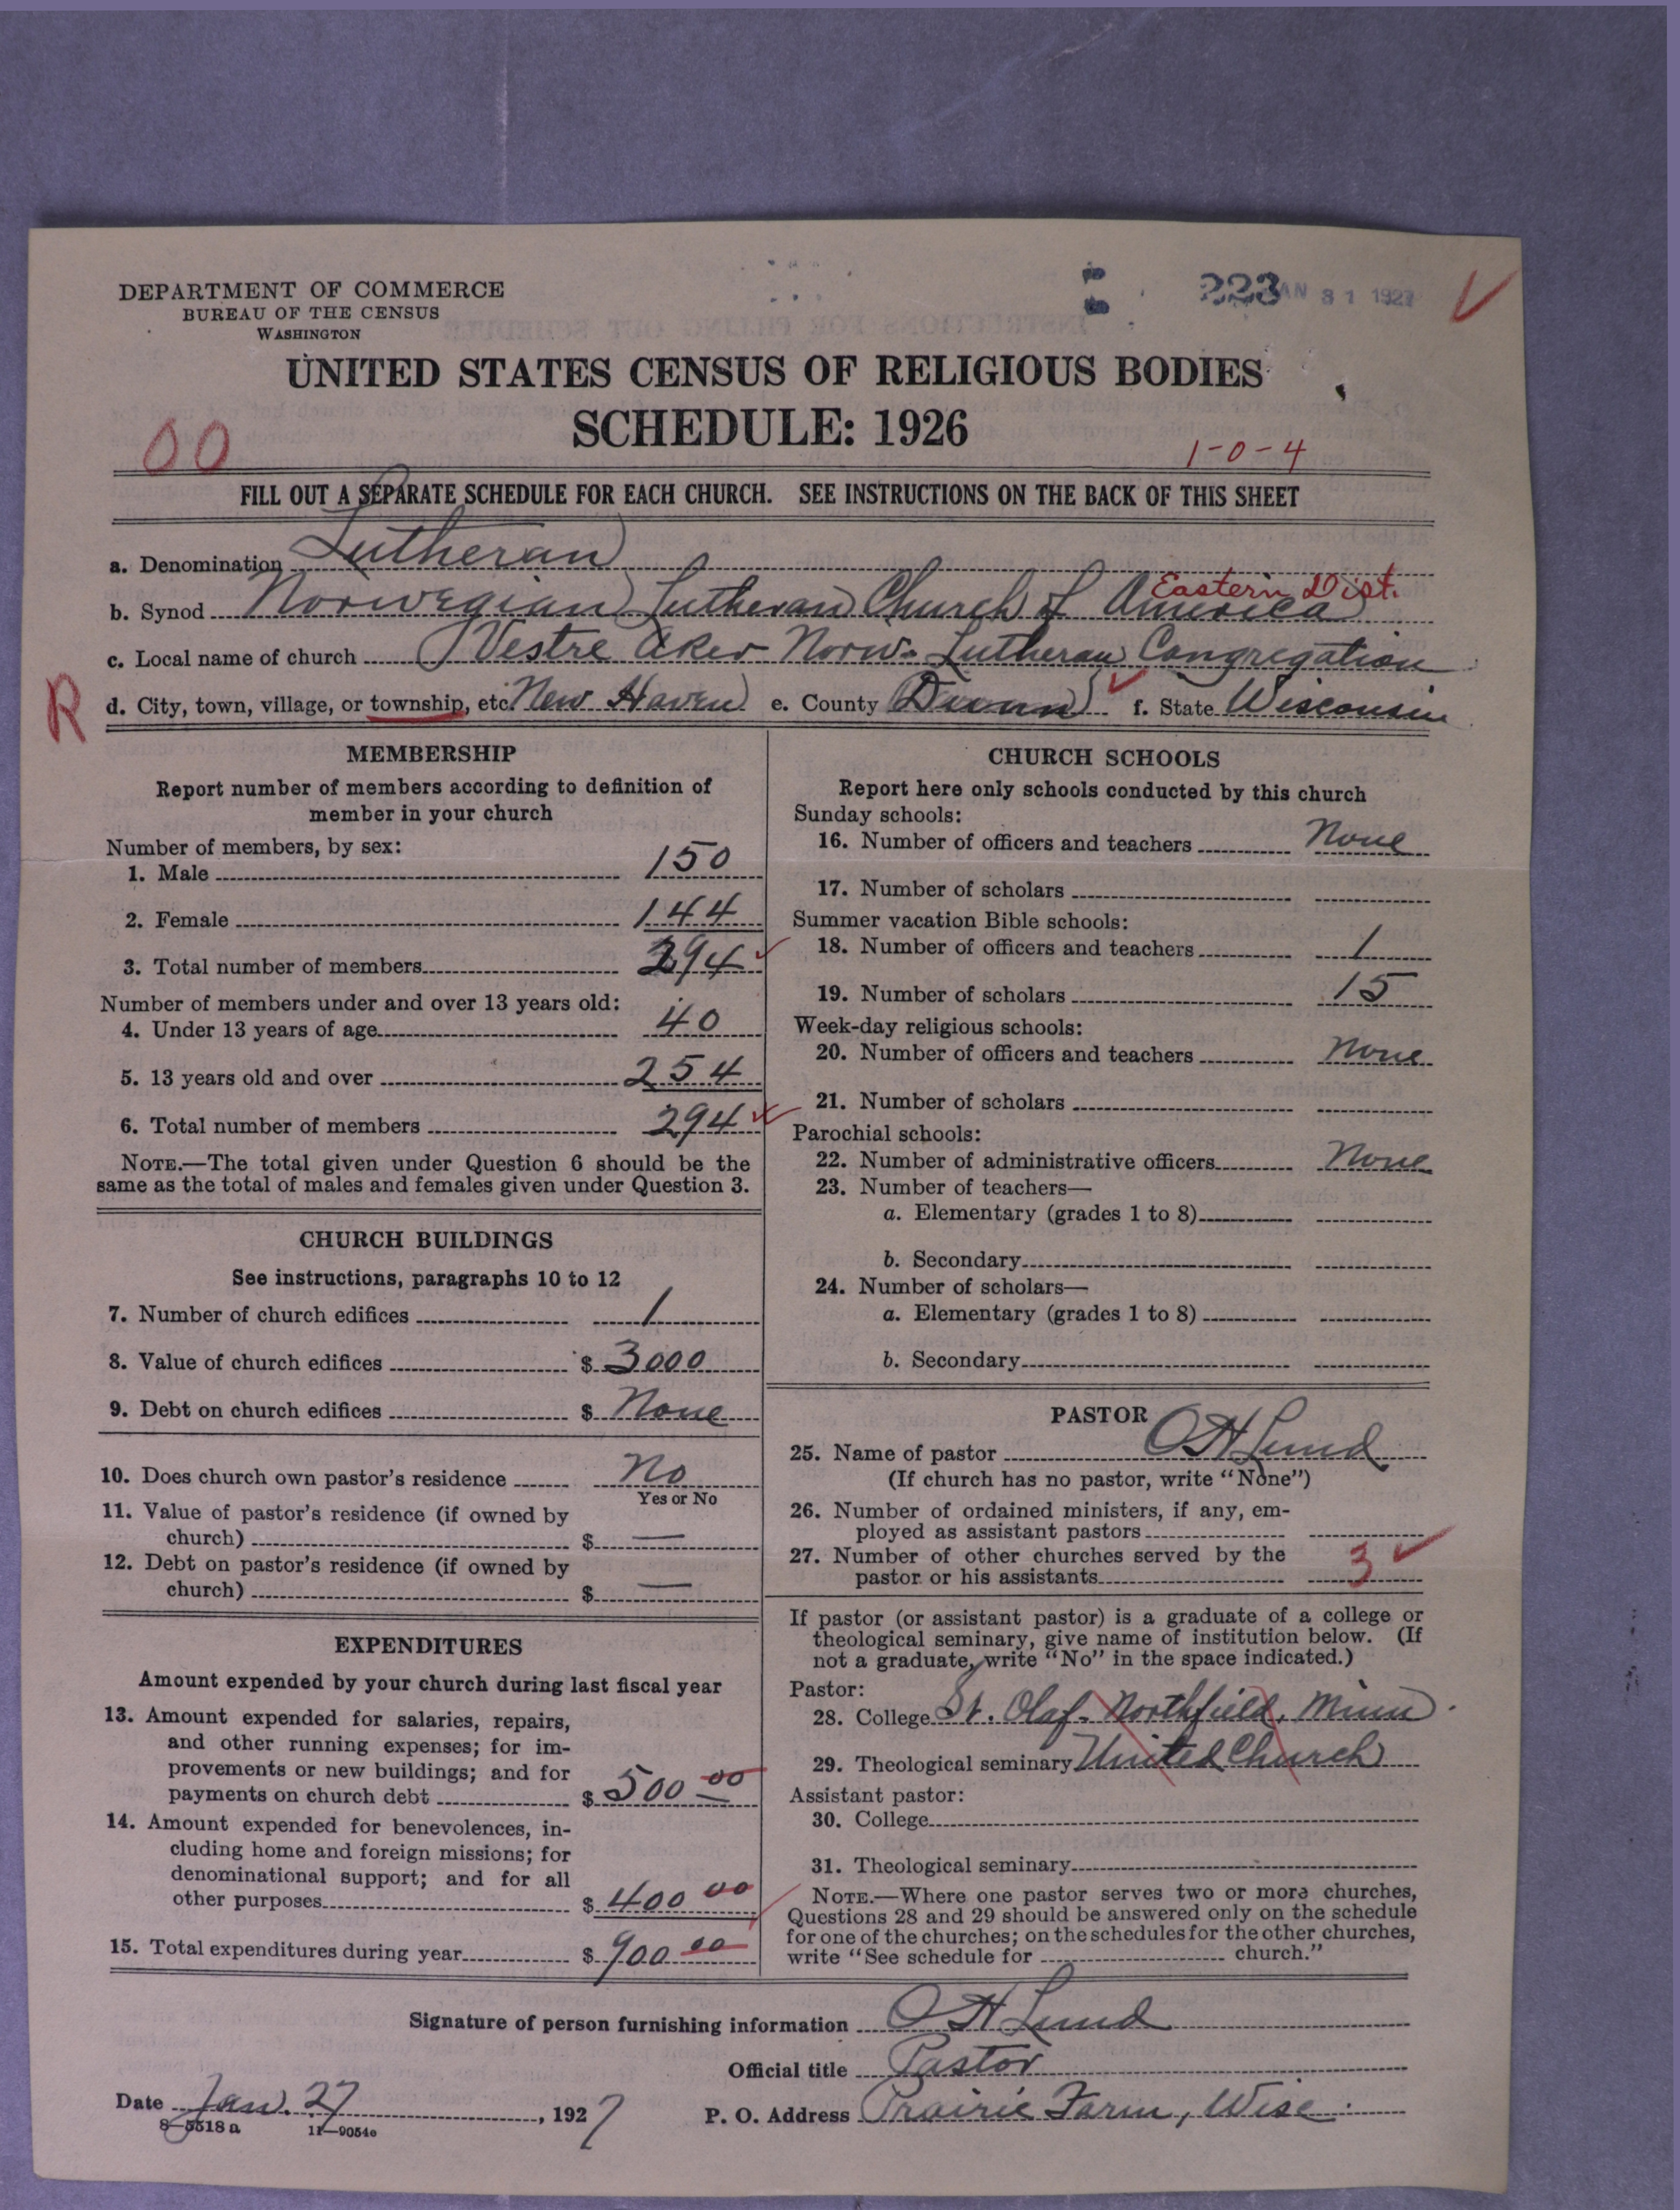 DEPARTMENT OF COMMERCE
BUREAU OF THE CENSUS
WASHINGTON
223 JAN 31 1927
UNITED STATES CENSUS OF RELIGIOUS BODIES
SCHEDULE: 1926
00
1-0-4
FILL OUT A SEPARATE SCHEDULE FOR EACH CHURCH. SEE INSTRUCTIONS ON THE BACK OF THIS SHEET
a. Denomination Lutheran
Eastern Dist.
b. Synod Norwegian Lutheran Church of America
c. Local name of church Vestre Aker Norw. Lutheran Congregation
R
d. City, town, village, or township, etc. New Haven e. County Dunn f. State Wisconsin
MEMBERSHIP
Report number of members according to definition of
member in your church
Number of members, by sex:
1. Male 150
2. Female 144
3. Total number of members 294
Number of members under and over 13 years old:
4. Under 13 years of age 40
5. 13 years old and over 254
6. Total number of members 294
NOTE.—The total given under Question 6 should be the
same as the total of males and females given under Question 3.
CHURCH BUILDINGS
See instructions, paragraphs 10 to 12
7. Number of church edifices 1
8. Value of church edifices $ 3000
9. Debt on church edifices $ None
10. Does church own pastor's residence No
Yes or No
11. Value of pastor's residence (if owned by
church) $ —
12. Debt on pastor's residence (if owned by
church) $ —
EXPENDITURES
Amount expended by your church during last fiscal year
13. Amount expended for salaries, repairs,
and other running expenses; for im-
provements or new buildings; and for
payments on church debt $ 500 00
14. Amount expended for benevolences, in-
cluding home and foreign missions; for
denominational support; and for all
other purposes $ 400 00
15. Total expenditures during year $ 900 00
CHURCH SCHOOLS
Report here only schools conducted by this church
Sunday schools:
16. Number of officers and teachers None
17. Number of scholars
Summer vacation Bible schools:
18. Number of officers and teachers 1
19. Number of scholars 15
Week-day religious schools:
20. Number of officers and teachers None
21. Number of scholars
Parochial schools:
22. Number of administrative officers None
23. Number of teachers—
a. Elementary (grades 1 to 8)
b. Secondary
24. Number of scholars—
a. Elementary (grades 1 to 8)
b. Secondary
PASTOR
25. Name of pastor O H Lund
(If church has no pastor, write "None")
26. Number of ordained ministers, if any, em-
ployed as assistant pastors
27. Number of other churches served by the
pastor or his assistants 3
If pastor (or assistant pastor) is a graduate of a college or
theological seminary, give name of institution below. (If
not a graduate, write "No" in the space indicated.)
Pastor:
28. College St. Olaf - Northfield, Minn
29. Theological seminary United Church
Assistant pastor:
30. College
31. Theological seminary
NOTE.—Where one pastor serves two or more churches,
Questions 28 and 29 should be answered only on the schedule
for one of the churches; on the schedules for the other churches,
write "See schedule for church."
Signature of person furnishing information O H Lund
Official title Pastor
Date Jan. 27, 1927 P. O. Address Prairie Farm, Wisc.
8—5518 a 11—9054e